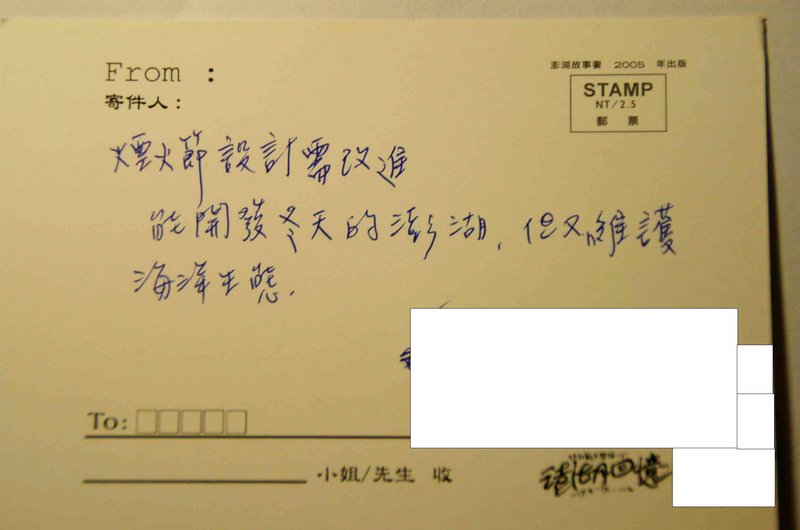 From :
澎湖故事妻 2005 年出版
寄件人:
STAMP
NT/2.5
郵 票
煙火節設計需改進
能開發冬天的澎湖,但又維護
海洋生態.
To:
小姐/先生 收
回憶